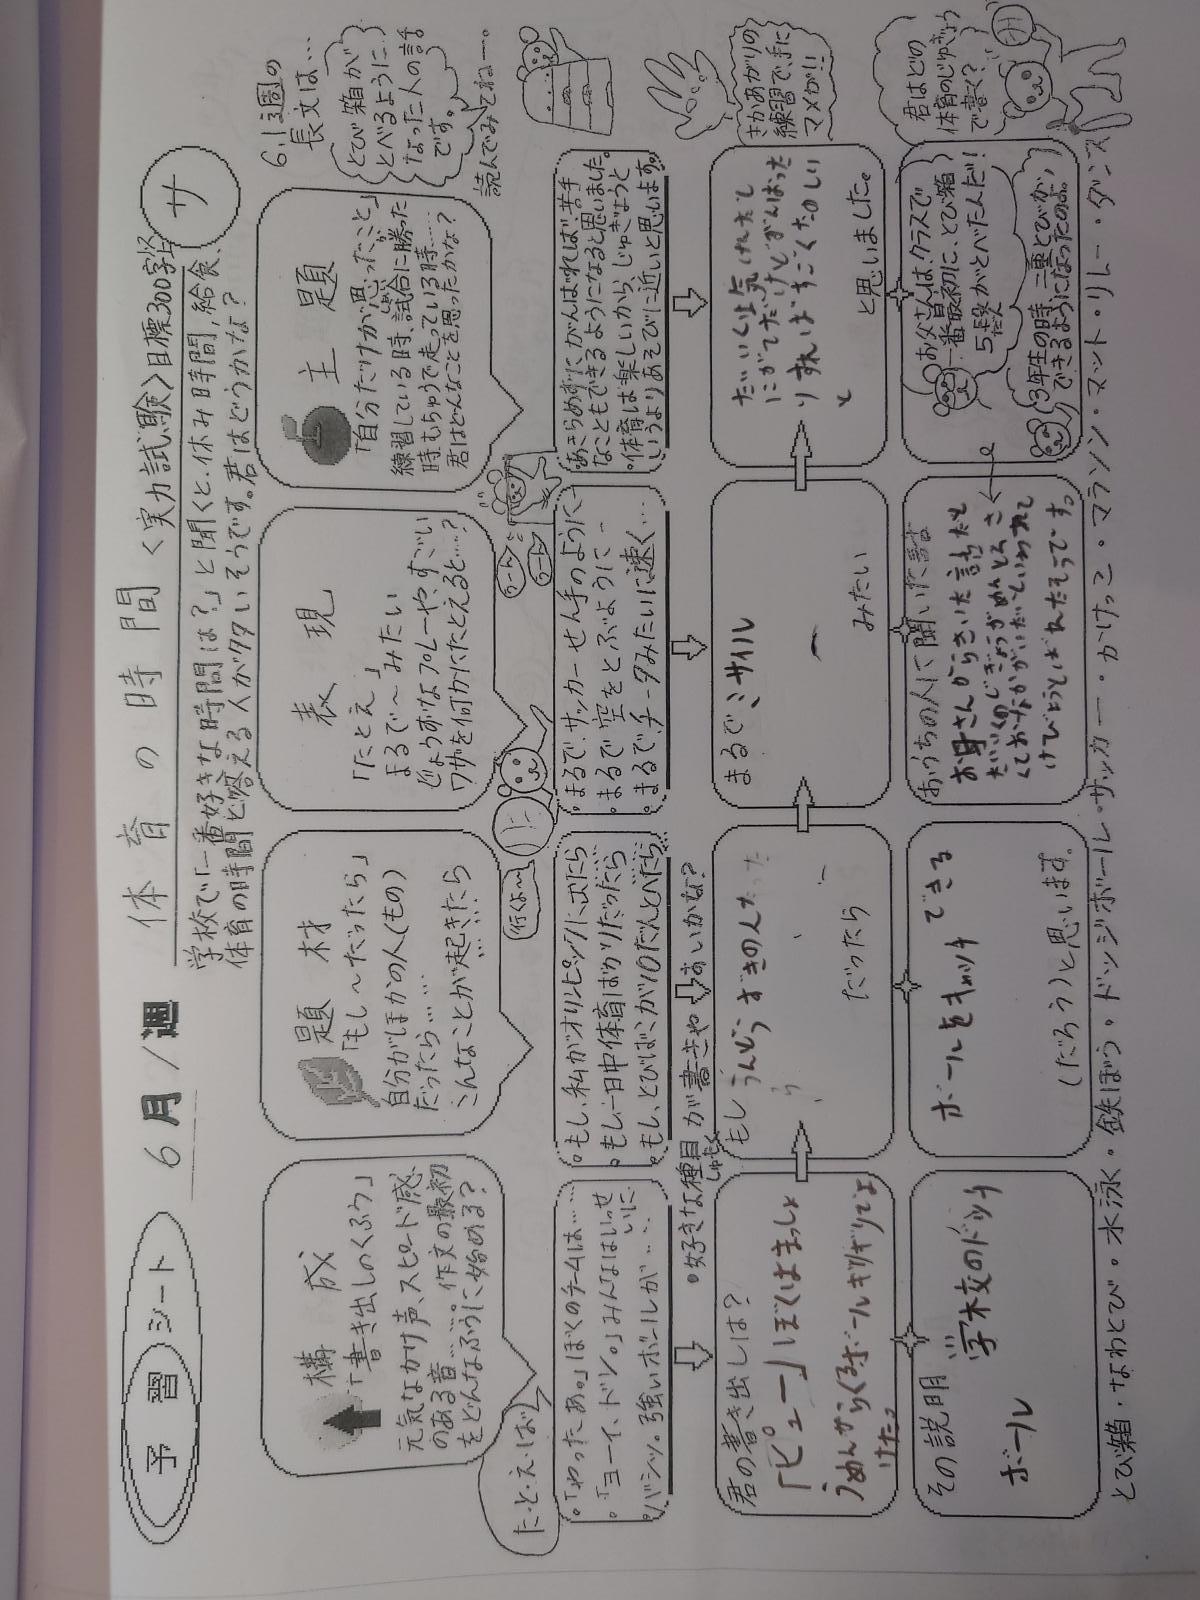 予習シート 6月1週
体育の時間 <実力試験>目標300字以上 サ
学校で「一番好きな時間は?」と聞くと、休み時間、給食、
体育の時間と答える人が多いそうです。君はどうかな?
6.1週の
長文は…
とび箱が
とべるように
なった人の話
です。
読んでみてねー。
構成
「書き出しのくふう」
元気なかけ声、スピード感
のある音……作文の最初
をどんなふうに始める?
題材
「もし~だったら」
自分がほかの人(もの)
だったら……
こんなことが起きたら
表現
「たとえ」
まるで~みたい
じょうずなプレーや、すごい
ワザを何かにたとえると……?
主題
「自分だけが思ったこと」
練習している時、試合に勝った
時、もちゅうで走っている時……
君はどんなことを思ったかな?
た・と・え・ば
行くよ~
うーん
うーん
。「やったあ。」ぼくのチームは……
。「ヨーイ、ドン。」みんなはいっせいに…
。バシッ。強いボールが……
。もし、私がオリンピックに出たら
。もし一日中体育ばかりだったら
。もし、とびばこが10だんとべたら…
。まるで、サッカーせん手のように…
。まるで空をとぶように…
。まるで、チータみたいに速く…
。あきらめずにがんばれば苦手
なこともできるようになると思いました。
。体育は楽しいから、じゅぎょうと
いうよりあそびに近いと思います。
さかあがりの
練習で、手に
マメが!!
。好きな種目が書きやすいかな?
しゅもく
君の書き出しは?
「ピュー」ぼくはまっしょ
うめんからくるボールをギリギリでよ
けた。
もし うんどうずきの人だったら
だったら
まるでミサイル
みたい
たいいくは気けれだと
にがてだけどがんばった
りすればすごくたのしい
と
と思いました。
君はどの
体育のじゅぎょう
で書く?
その説明
学校のドッチ
ボール
ボールをキャッチできる
(だろう)と思います。
おうちの人に聞いた話
お母さんからきいた話だと
お父さんは、クラスで
一番最初に、とび箱
5段がとべた人だ!
だん
3年生の時、二重とびが
できるようになったのよ。
とび箱・なわとび・水泳・鉄ぼう・ドッジボール・サッカー・かけっこ・マラソン・マット・リレー・ダンス